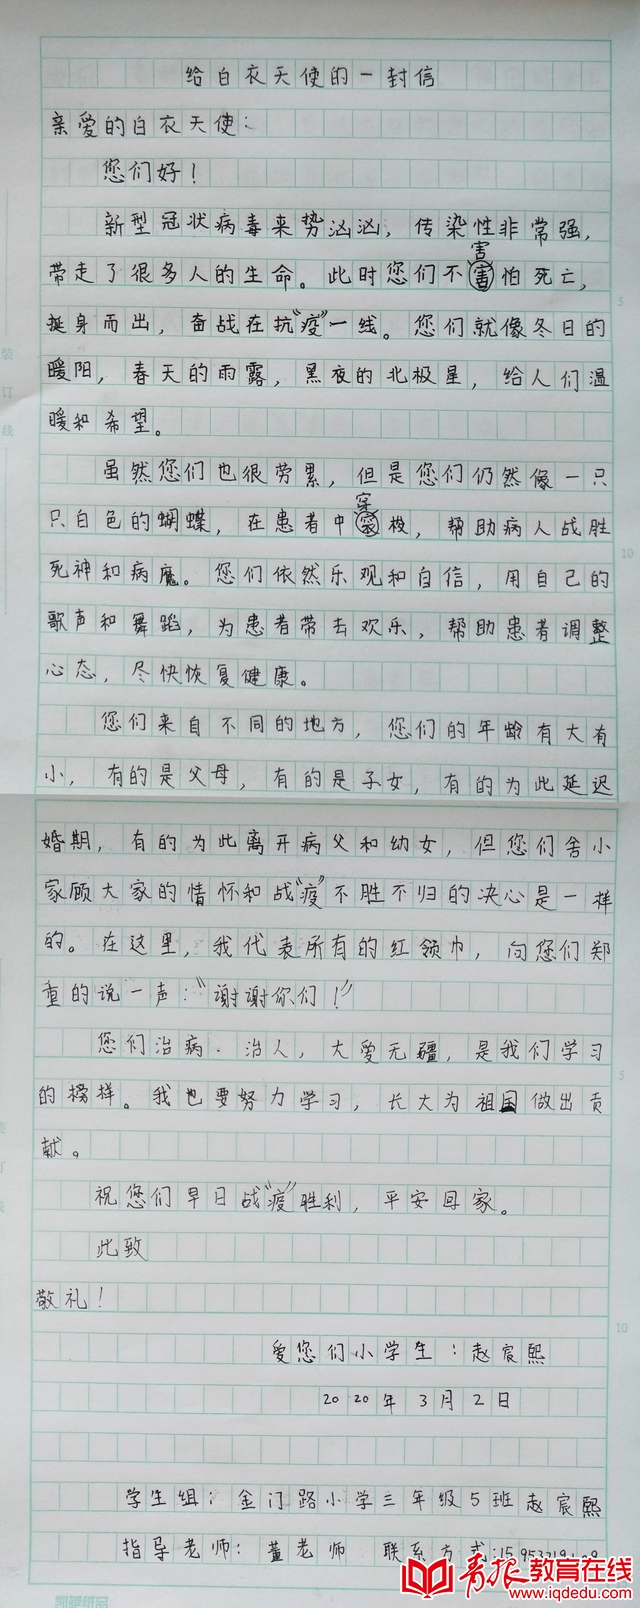 给白衣天使的一封信
亲爱的白衣天使：
您们好！
新型冠状病毒来势汹汹，传染性非常强，
害
带走了很多人的生命。此时您们不害怕死亡，
挺身而出，奋战在抗“疫”一线。您们就像冬日的
暖阳，春天的雨露，黑夜的北极星，给人们温
暖和希望。
虽然您们也很劳累，但是您们仍然像一只
穿
只白色的蝴蝶，在患者中梭，帮助病人战胜
死神和病魔。您们依然乐观和自信，用自己的
歌声和舞蹈，为患者带去欢乐，帮助患者调整
心态，尽快恢复健康。
您们来自不同的地方，您们的年龄有大有
小，有的是父母，有的是子女，有的为此延迟
婚期，有的为此离开病父和幼女，但您们舍小
家顾大家的情怀和战“疫”不胜不归的决心是一样
的。在这里，我代表所有的红领巾，向您们郑
重的说一声：“谢谢你们！”
您们治病、治人，大爱无疆，是我们学习
的榜样。我也要努力学习，长大为祖国做出贡
献。
祝您们早日战“疫”胜利，平安回家。
此致
敬礼！
爱您们小学生：赵宸熙
2020年3月2日
学生组：金门路小学三年级5班赵宸熙
指导老师：董老师 联系方式：
青报教育在线
www.iqdedu.com
装
订
线
5
10
5
10